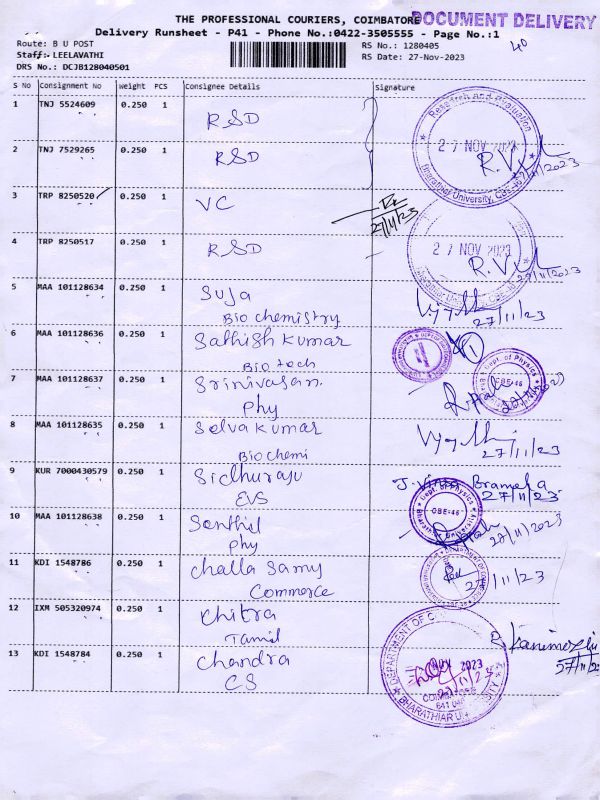 THE PROFESSIONAL COURIERS, COIMBATORE DOCUMENT DELIVERY
Delivery Runsheet - P41 - Phone No.:0422-3505555 - Page No.:1
Route: B U POST RS No.: 1280405 40
Staff: LEELAVATHI RS Date: 27-Nov-2023
DRS No.: DCJB128040501
S No Consignment No Weight PCS Consignee Details Signature
1 TNJ 5524609 0.250 1 RSD
Research and Evaluation
27 NOV 2023
Bharathiar University, CBE-46
27/11/2023
2 TNJ 7529265 0.250 1 RSD
3 TRP 8250520 0.250 1 VC
27/11/23
4 TRP 8250517 0.250 1 RSD
27 NOV 2023
27/11/23
5 MAA 101128634 0.250 1 Suja
Bio chemistry 27/11/23
6 MAA 101128636 0.250 1 Sathish Kumar
Bio tech
7 MAA 101128637 0.250 1 Srinivasan.
Phy
Dept of Physics
CBE-46
8 MAA 101128635 0.250 1 Selva Kumar
Biochemi 27/11/23
9 KUR 7000430579 0.250 1 Sidhuraju
EVS 27/11/23
Dept of Physics
CBE-46
10 MAA 101128638 0.250 1 Senthil
Phy 27/11/2023
11 KDI 1548786 0.250 1 Challa Samy
Commerce 27/11/23
12 IXM 505320974 0.250 1 Chitra
Tamil
R. Kanimozhi
27/11/23
13 KDI 1548784 0.250 1 Chandra
CS
DEPARTMENT OF
NOV 2023
BHARATHIAR UNIVERSITY